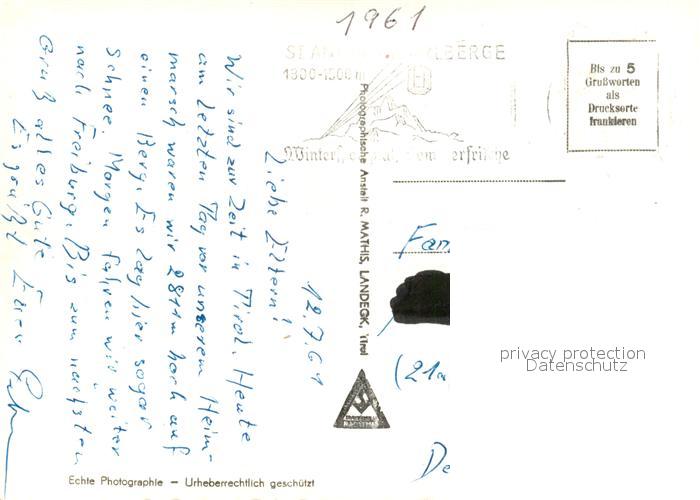 1961
ST. AN
LBERGE
1300-1500 m
Winters
erfrische
Bis zu 5
Grußworten
als
Drucksorte
frankieren
Photographische Anstalt R. MATHIS, LANDECK, Tirol
12.7.61
Liebe Eltern!
Wir sind zur Zeit in Tirol. Heute
am letzten Tag vor unserem Heim-
marsch waren wir 2811 m hoch auf
einen Berg. Es lag hier sogar
Schnee. Morgen fahren wir weiter
nach Freiburg. Bis zum nächsten
Gruß alles Gute
Es grüßt Euer
Fam
(21a
De
privacy protection
Datenschutz
Echte Photographie – Urheberrechtlich geschützt